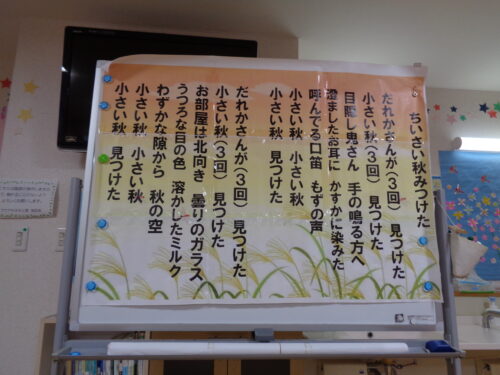 ちいさい秋みつけた
だれかさんが(3回) 見つけた
小さい秋(3回) 見つけた
目隠し鬼さん 手の鳴る方へ
澄ましたお耳に かすかに染みた
呼んでる口笛 もずの声
小さい秋 小さい秋
小さい秋 見つけた
だれかさんが(3回) 見つけた
小さい秋(3回) 見つけた
お部屋は北向き 曇りのガラス
うつろな目の色 溶かしたミルク
わずかな隙から 秋の空
小さい秋 小さい秋
小さい秋 見つけた